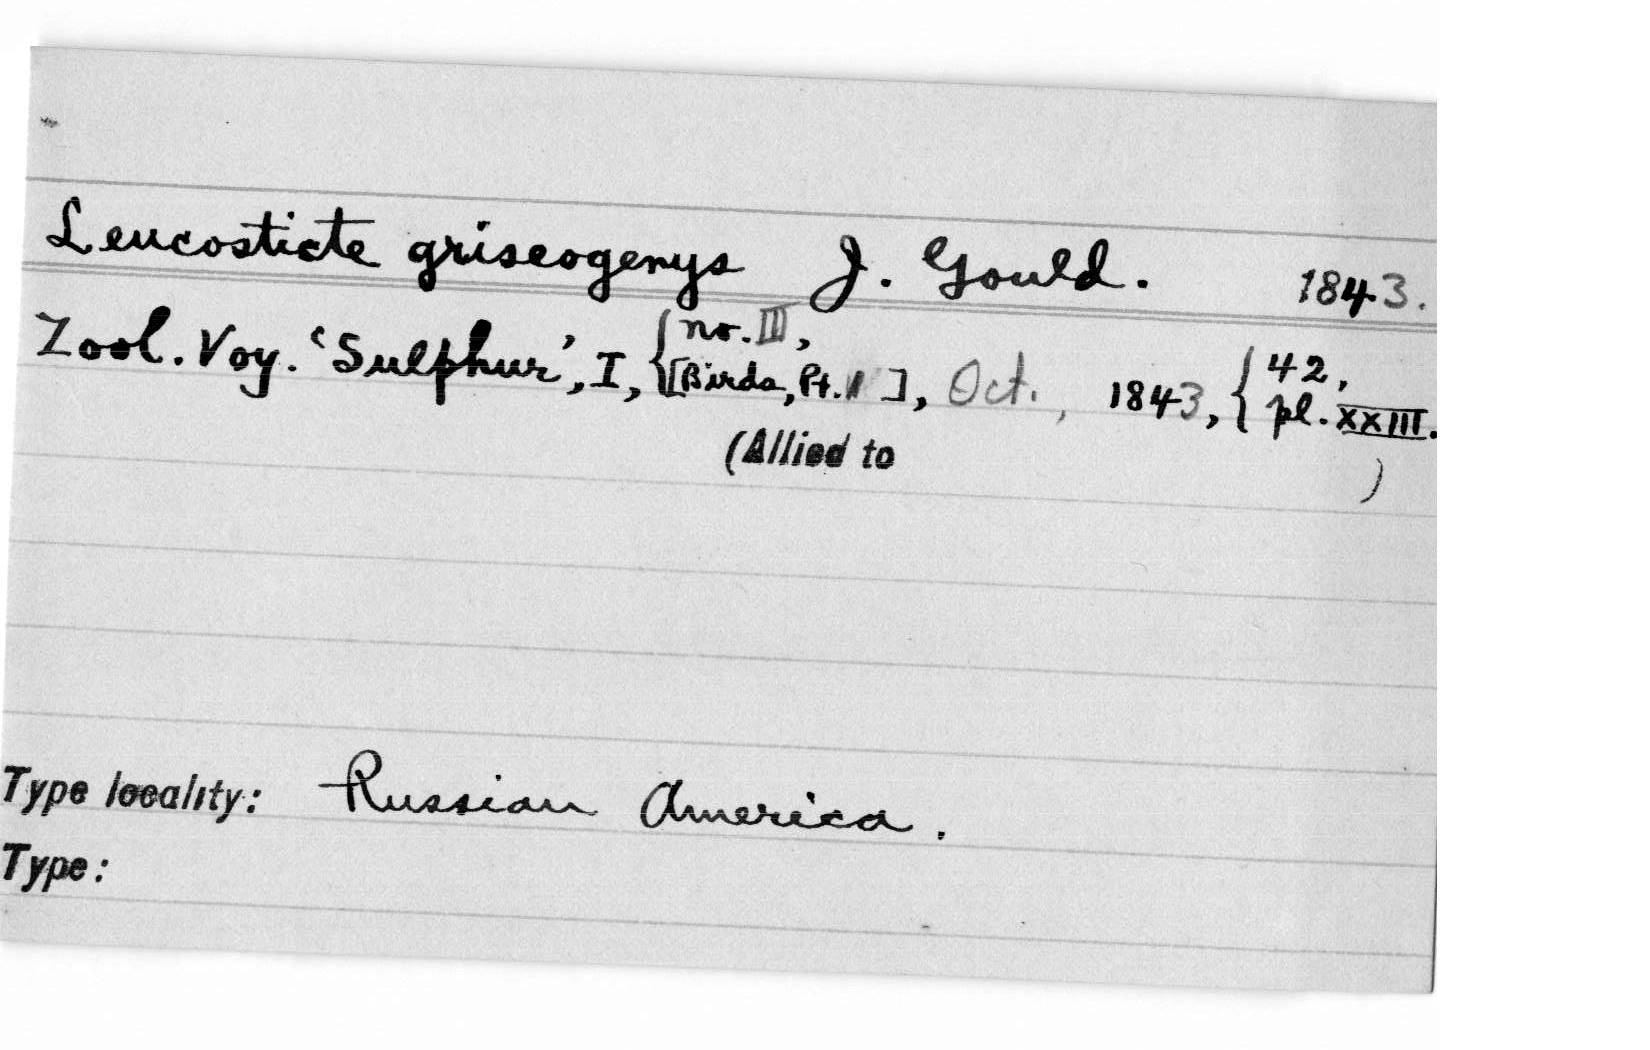 Leucosticte griseogenys J. Gould. 1843.
Zool. Voy. 'Sulphur', I, { no. III, [Birds, Pt. ], Oct., 1843, { 42, pl. XXIII.
(Allied to )
Type locality: Russian America.
Type: